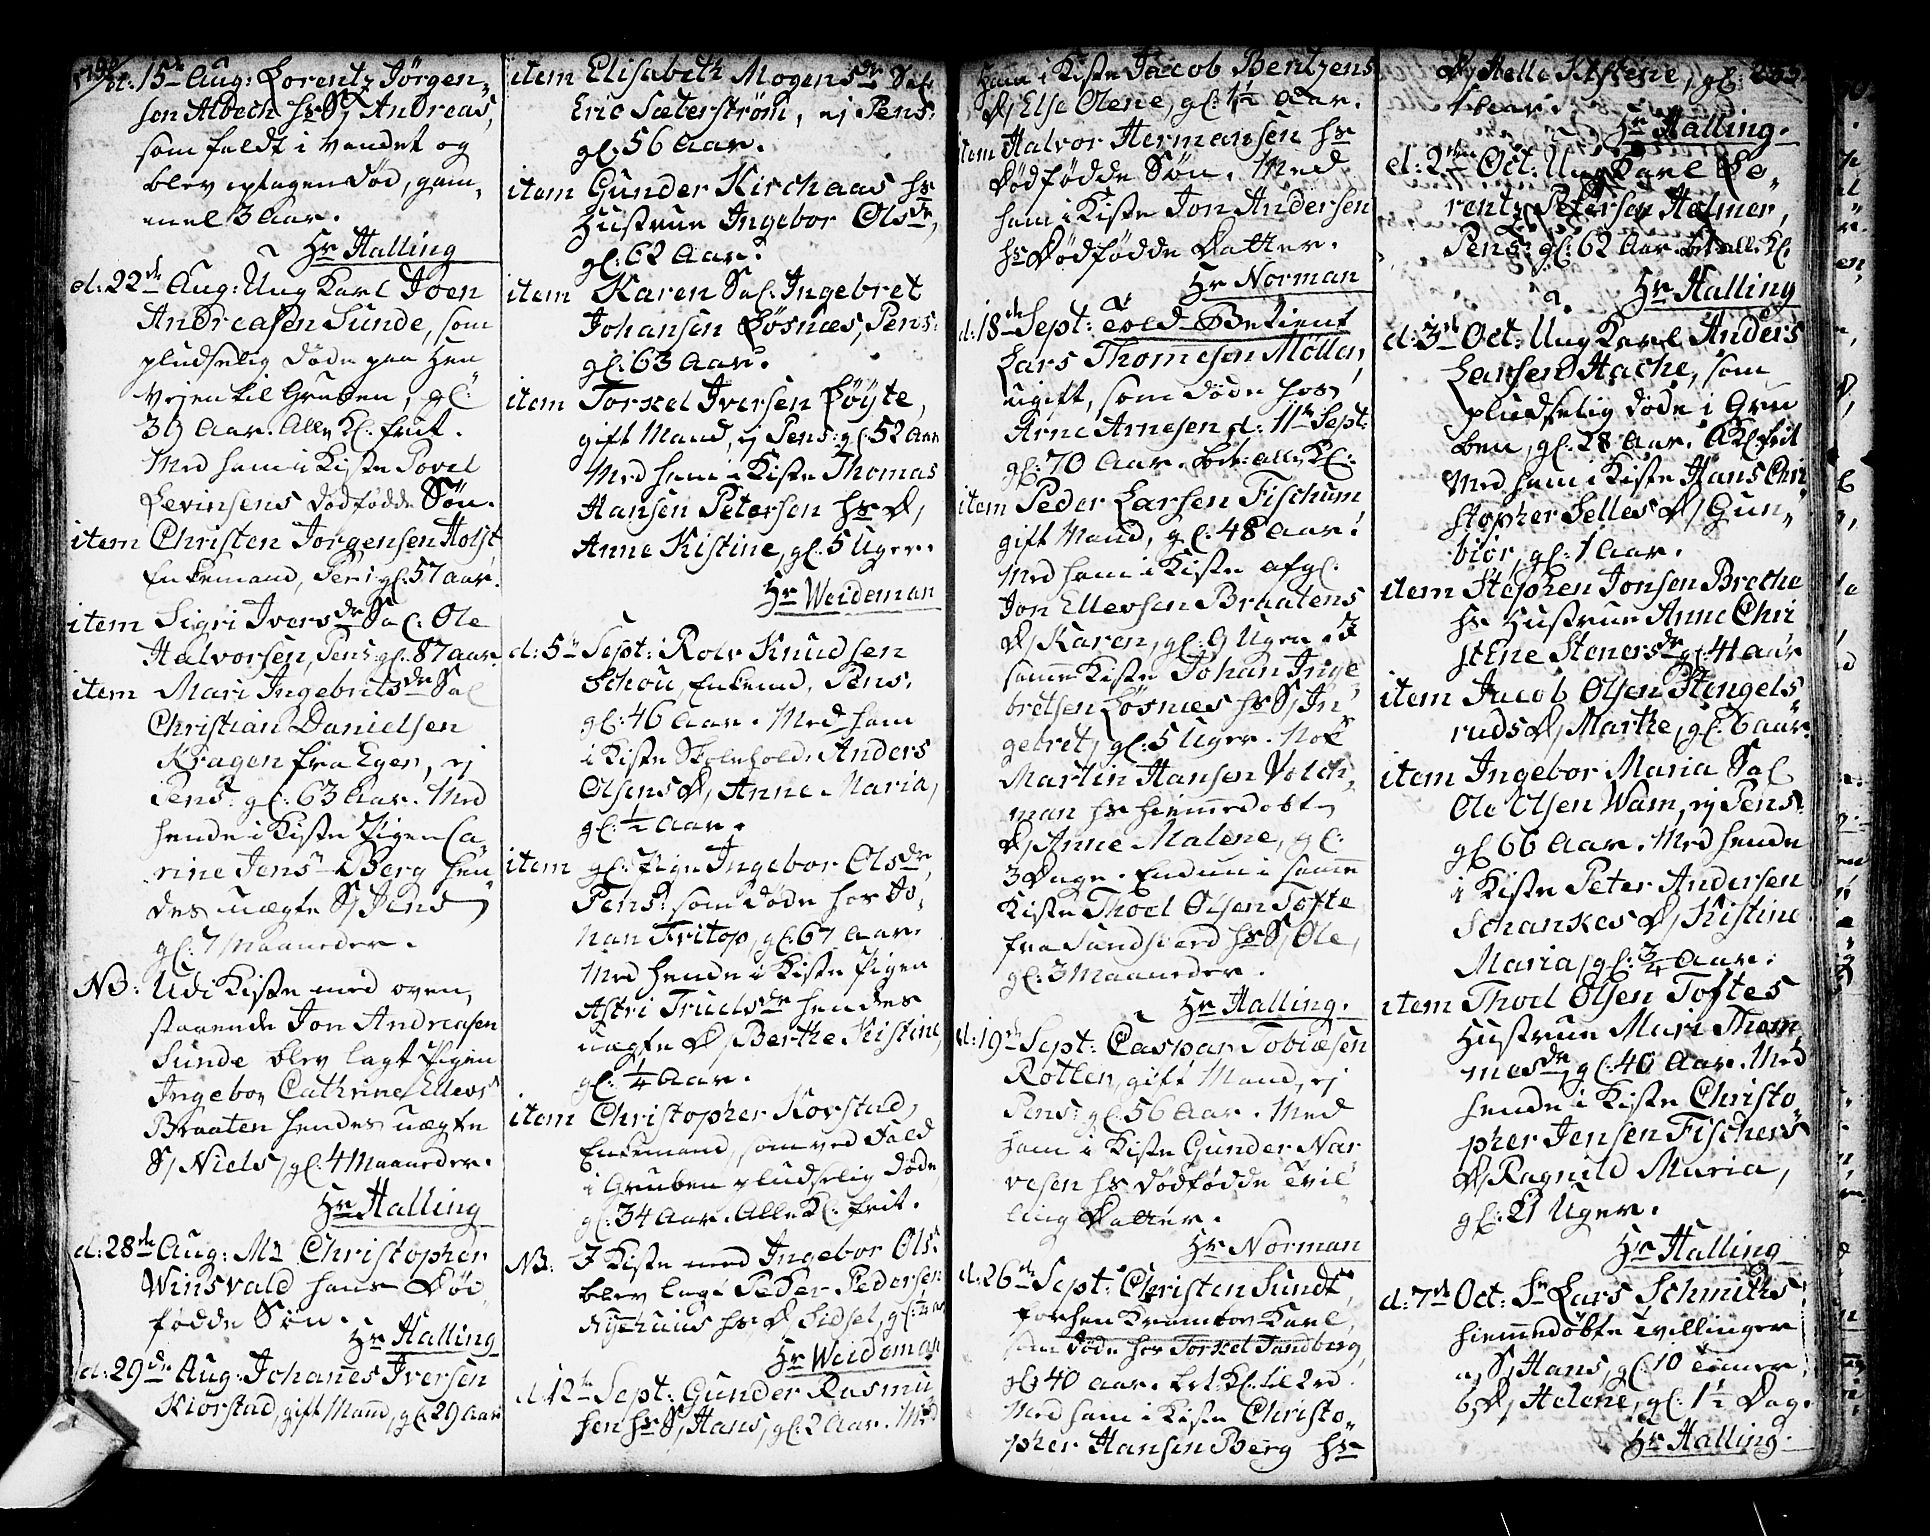 d: 15de Aug: Lorentz Jörgen„
sen Albech hs S/ Andreas,
som faldt i Vandet og
blev optagen Död, gam„
mel 3 Aar.
Hr Halling
d: 22de Aug: Ung Karl Joen
Andreasen Sunde, som
pludselig döde paa Hen
Vejen til Gruben, gl:
39 Aar. Alle Kl. frit.
Med ham i Kiste Povel
Levinsens dödfödde Sön.
item Christen Jorgensen Holst
Enkemand, Pens: gl: 57 aar.
item Sigri Iversdr Sal. Ole
Halvorsen, Pens: gl: 87 aar.
item Mari Ingebretsdr Sal
Christian Danielsen
Kragen fra Eger, ej
Pens: gl: 63 Aar. Med
hende i Kiste Pigen Ca„
rine Jensdr Berg hen
des uægte S/ Jens
gl: 7 Maaneder.
NB: Udi Kiste med oven„
staaende Jon Andreasen
Sunde blev lagt Pigen
Ingebor Cathrine Ellevs
Braaten hendes uægte
S/ Niels, gl: 4 Maaneder.
Hr Halling
d: 28de Aug: Mr Christopher
Winsvald hans Död„
födde Sön.
Hr Halling
d: 29de Aug: Johannes Iversen
Kiorstad, gift Mand, gl: 29 Aar
item Elisabeth Mogensdr Sal.
Eric Sæterström, ej Pens:
gl: 56 Aar.
item Gunder Kirchaas hs
Hustrue Ingebor Olsdr,
gl: 62 Aar.
item Karen Sal. Ingebret
Johansen Lösnæs, Pens:
gl: 63 Aar.
item Torkel Iversen Löyte,
gift Mand, ej Pens: gl: 52 Aar
Med ham i Kiste Thomas
Hansen Petersen hs D/
Anne Kistine, gl: 5 Uger.
Hr Weideman
d: 5te Sept: Rolv Knudsen
Schou, Enkemd, Pens:
gl: 46 Aar. Med ham
i Kiste Skoleholdr Anders
Olsens D/ Anne Maria,
gl: ½ Aar.
item gl: Pige Ingebor Olsdr,
Pens: som döde hos Jo„
han Fritop, gl: 67 Aar.
Med hende i Kiste Pigen
Astri Truelsdr hendes
uægte D/ Berthe Kistine,
gl: ¼ Aar.
item Christopher Korstad,
Enkemand, som ved Fald
i Gruben pludselig döde,
gl: 34 Aar. Alle Kl. frit.
NB: I Kiste med Ingebor Ols:
blev lagt Peder Pedersen
hs D/ Sidsel, gl:
Hr Weideman
d: 12te Sept: Gunder Rasmu
sen hs S/ Hans, gl: 2 Aar. Med
ham i Kiste Jacob Bentzens
D/ Else Olene, gl: 1½ Aar.
item Halvor Hermansen hs
Dödfödde Sön. Med
ham i Kiste Jon Andersen
hs Dödfödde Datter.
Hr Norman
d: 18de Sept: Told-Betient
Lars Thomesen Möller,
ugift, som döde hos
Arne Arnesen d: 11te Sept:
gl: 70 Aar. bet: alle Kl:
item Peder Larsen Fischum,
gift Mand, gl: 48 Aar.
Med ham i Kiste afgl.
Jon Ellevsen Braatens
D/ Karen, gl: 9 Uger. I
samme Kiste Johan Inge
bretsen Lösnæs hs S/ In
gebret, gl: 5 Uger. Nok
Martin Hansen Volch„
man hs hiemmedöbte
D/ Anne Malene, gl:
3 Dage. Endnu i samme
Kiste Thoel Olsen Tofte
fra Sandsværd hs S/ Ole,
gl: 3 Maaneder.
Hr Halling.
d: 19de Sept: Caspar Tobiæsen
Rotten, gift Mand, ej
Pens: gl: 56 Aar. Med
ham i Kiste Gunder Nar
vesen hs dödfödde Tvil
ling Datter.
Hr Norman
d: 26de Sept: Christen Sundt,
forhen Krambov-Karl,
som döde hos Torkel Sandberg,
gl: 40 Aar. bet: Kl. til 2rd
Med ham i Kiste Christo„
pher Hansen Berg hs
D/ Helle Kistene, gl:
Hr Halling.
d: 2den Oct: Ung Karl Lo„
rentz Petersen Holmer,
Pens: gl: 62 Aar bet alle Kl.
Hr Halling
d: 3de Oct: Ung Karl Anders
Larsen Hache, som
pludselig döde i Gru
ben, gl: 28 Aar. A Kl. frit
Med ham i Kiste Hans Chri
stopher Selles D/ Gun„
biör, gl: 1 Aar.
item Stephen Jonsen Brethe
hs Hustrue Anne Chri
stene Stenersdr gl: 41 aar
item Jacob Olsen Stengels
ruds D/ Marthe, gl: 6 aar.
item Ingebor Maria Sal
Ole Olsen Wam, ej Pens:
gl 66 Aar. Med hende
i Kiste Peter Andersen
Schankes D/ Kistine
Maria, gl: ¾ Aar.
item Thoel Olsen Toftes
Hustrue Mari Thom
mesdr, gl: 40 Aar. Med
hende i Kiste Christo„
pher Jensen Fischers
D/ Ragnild Maria,
gl: 21 Uger.
Hr Halling
d: 7de Oct: Sr Lars Schmiths
hiemmedöbte Tvillinger
a, S/ Hans, gl: 10 Timer
b, D/ Helene, gl: 1½ Dag.
Hr Halling.